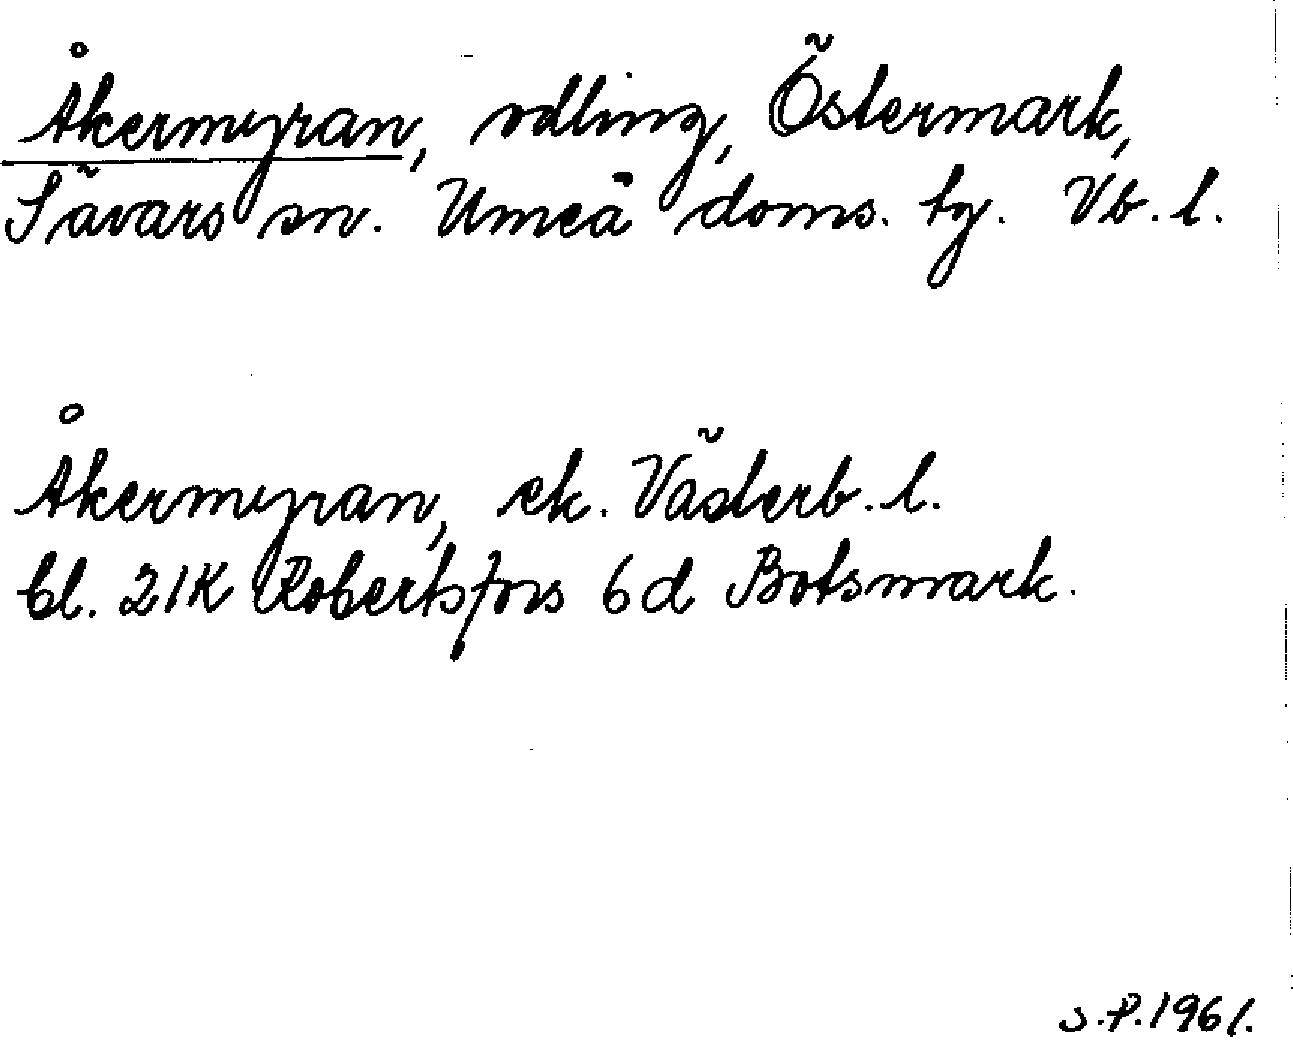 Åkermyran, odling, Östermark,
Sävars sn. Umeå doms. tg. Vb. l.
Åkermyran, ek. Västerb. l.
bl. 21K Robertsfors 6d Botsmark.
S.P. 1961.